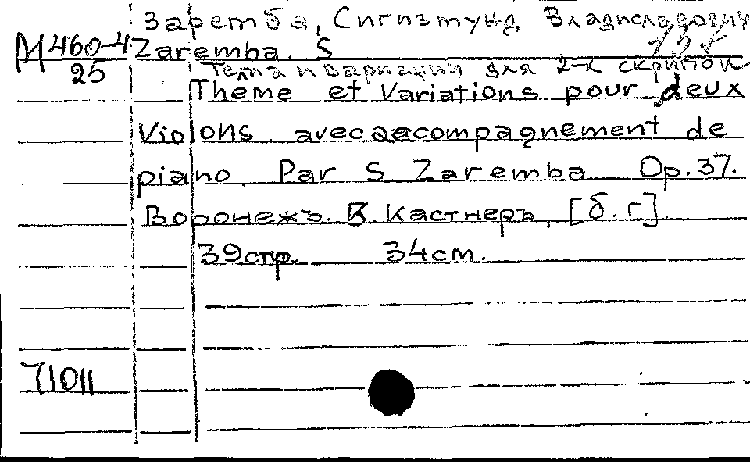 Заремба, Сигизмунд Владиславович
М 460-4 Zaremba. S
25 Тема и вариации для 2-х скрипок
Theme et Variations pour deux
Violons avec accompagnement de
piano. Par S Zaremba Op.37.
Воронежъ. В. Кастнеръ, [б.г].
39стр. 34см.
71011